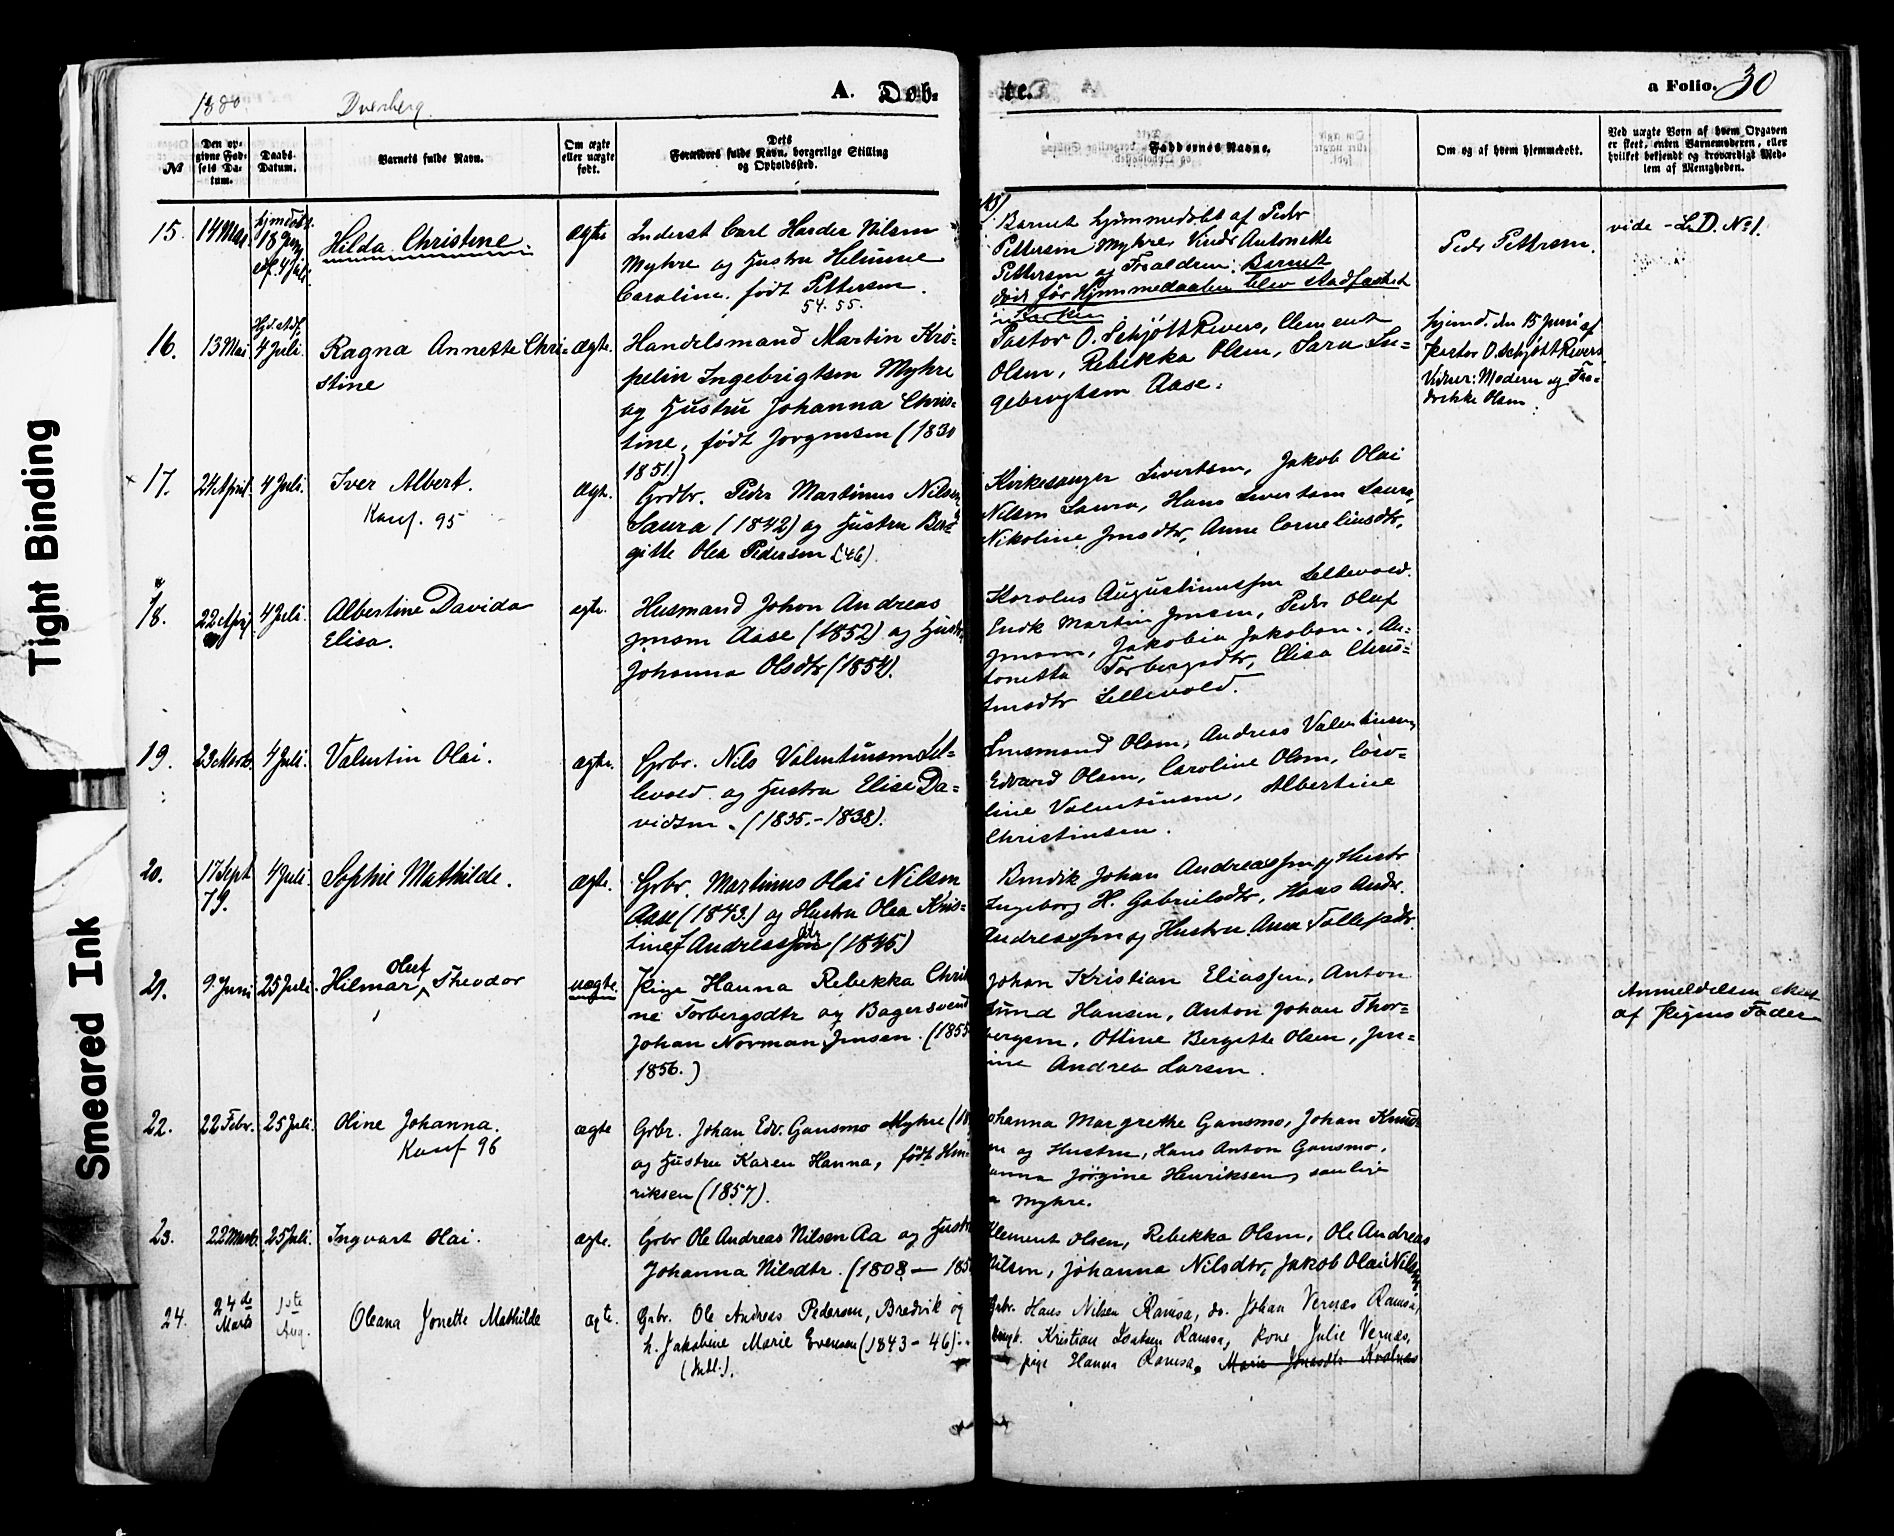 1880 Dverberg
A. Døb-
te.
a Folio. 30
№
Den op-
givne Fød-
sels Da-
tum.
Daabs-
Datum.
Barnets fulde Navn.
Om ægte
eller uægte
født.
Dets
Forældres fulde Navn, borgerlige Stilling
og Opholdssted.
Faddernes Navne.
Om og af hvem hjemmedøbt.
Ved uægte Børn af hvem Opgaven
er skeet, enten Barnemoderen, eller
hvilket bekjendt og troværdigt Med-
lem af Menigheden.
15. 14 Mai
hjmdøbt
18 Juny
4 Juli
Hilda Christine.
ægte
Inderst Carl Harder Nilsen
Myhre og Hustru Helmine
Caroline. født Pettersen.
54. 55.
15)
Barnet hjemmedøbt af Peder
Pettersen Myhre Antonette
Pettersen og Forældren: Barnet
døde før Hjemmedaaben blev stadfæstet
i Kirken
Peder Pettersen.
vide - L.D. No 1.
16. 13 Mai
Hjd. stdf.
4 Juli.
Ragna Annette Chri-
stine
ægte.
Handelsmand Martin Krö-
pelin Ingebrigtsen Myhre
og Hustru Johanna Chris-
tine, født Jørgensen (1830
1851)
Pastor O. Schjøtt Rivers, Clement
Olsen, Rebekka Olsen, Sara In-
gebrigtsen Aase.
hjemd. den 15 Juni af
Pastor O. Schjøtt Rivers
Vidner: Modern og Fre-
drikke Olsen.
17. 24 April 4 Juli.
Iver Albert.
Konf. 95
ægt.
Grdbr. Peder Martinus Nilsen
Saura (1842) og Hustru Ber-
gitte Olea Pedersen (46).
Kirkesanger Sivertsen, Jakob Olai
Nilsen Saura, Hans Sivertsen Saura,
Nikoline Jensdtr, Anne Corneliusdtr,
18. 22 April 4 Juli
Albertine Davida
Elisa.
ægte.
Husmand Johon Andreas
Jensen Aase (1852) og Hustru
Johanna Olsdtr (1854).
Karolus Augustinussen Lellevold.
Enok Martin Jensen, Peder Oluf
Jensen, Jakobia Jakobsen., An-
tonetta Torbergsdtr, Elisa Chris-
tensdtr Lellevold.
19. 23 Marts 4 Juli.
Valentin Olai.
ægte.
Grbr. Nils Valentinsen Lel-
levold og Hustru Elise Da-
vidsen. (1835.-1838).
Lensmand Olsen, Andreas Valentinsen,
Edvard Olsen, Caroline Olsen, Caro-
line Valentinsen, Albertine
Christensen.
20. 17 Sept
79.
4 Juli.
Sophie Mathilde.
ægte.
Grbr. Martinus Olai Nilsen
Aase (1843.) og Hustru Olea Kris-
tine f. Andreasdtr (1846.)
Bendik Johan Andreassen og Hustr
Ingeborg H. Gabrielsdtr, Hans Andr.
Andreassen og Hustru Anne Tollefsdtr.
21. 9 Juni 25 Juli.
Hilmar Oluf Theodor
uægte.
Pige Hanna Rebekka Christi
ne Torbergsdtr og Bagersvend
Johan Norman Jensen. (1855
1856.)
Johan Kristian Eliassen, Anton
Hansen, Anton Johan Thor-
bergsen, Ottine Bergitte Olsen, Jen-
sine Andrea Larsen.
Anmeldelsen skeet
af Pigens Fader
22. 22 Febr. 25 Juli.
Oline Johanna.
Konf 96
ægte
Grbr. Johan Edv. Gansmo Myhre (18
og Hustru Karen Hanna, født Hen-
riksen (1857).
Johanna Margrethe Gansmo, Johan Knud
og Hustru, Hans Anton Gansmo,
Jørgine Henriksen, samlige
Myhre.
23. 22 Marts. 25 Juli.
Ingvart Olai.
ægte.
Grbr Ole Andreas Nilsen Aa og Hustr
Johanna Nilsdtr. (1808 — 185
Klement Olsen, Rebekka Olsen, Ole Andreas
Nilsen, Johanna Nilsdtr, Jakob Olai Nilsen
24. 24de
Marts
1ste
Aug.
Oleana Jonette Mathilde
ægte.
Grbr. Ole Andreas Pedersen, Bredvik og
h. Jakobine Marie Evensen (1843 - 46).
(Indl.).
Grbr. Hans Nilsen Ramsa, do. Johan Vernæs Ramsa,
Kristian Isaksen Ramsa, kone Julie Vernæs,
pige Hanna Ramsa. Marie Jonasdtr Kvalnæs
Tight Binding
Smeared Ink